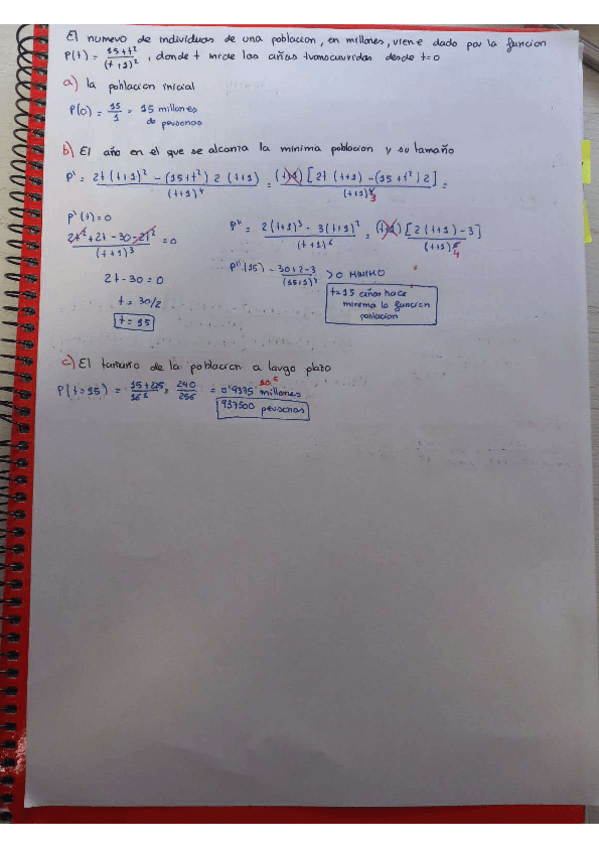 El numero de individuos de una poblacion, en millones, viene dado por la funcion
P(t) = (15+t²)/(t+1)², donde t mide los años transcurridos desde t=0
a) la poblacion inicial
P(0) = 15/1 = 15 millones
de personas
b) El año en el que se alcanza la minima poblacion y su tamaño
P' = (2t(t+1)² - (15+t²)2(t+1))/(t+1)⁴ = ((t+1)[2t(t+1) - (15+t²)2])/(t+1)³ =
P'(t)=0
(2t²+2t-30-2t²)/(t+1)³ = 0
2t-30=0
t = 30/2
t = 15
P'' = (2(t+1)³ - 3(t+1)²)/(t+1)⁶ = ((t+1)[2(t+1)-3])/(t+1)⁴
P''(15) = (30+2-3)/(15+1)⁴ >0 MINIMO
t=15 años hace
minima la funcion
poblacion
c) El tamaño de la poblacion a largo plazo
P(t=15) = (15+225)/16² = 240/256 = 0'9375 millones
10⁶
937500 personas